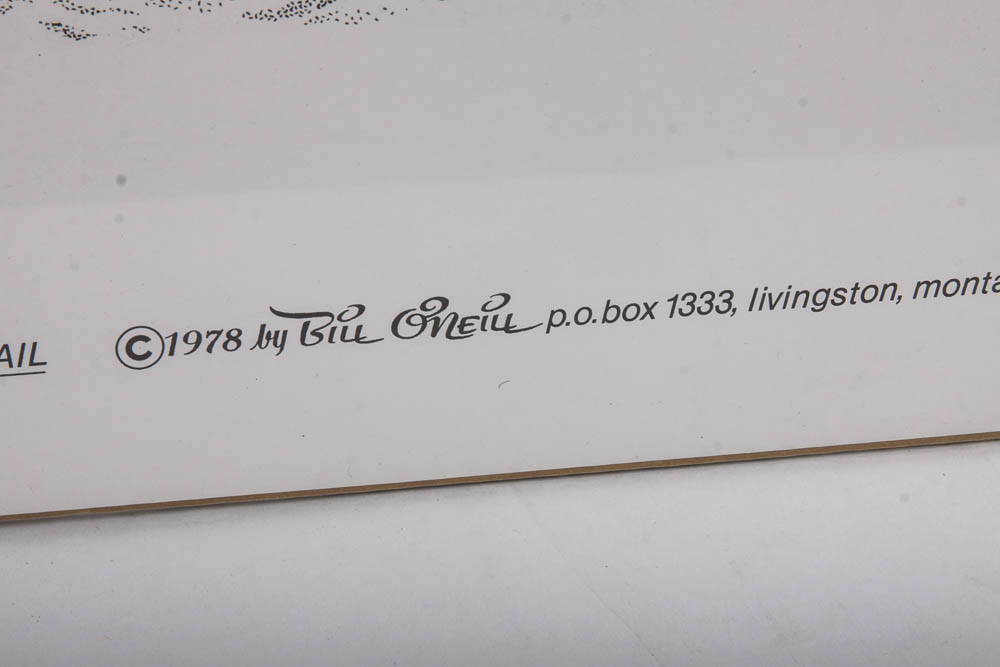 AIL
©1978 by Bill O'Neill p.o.box 1333, livingston, monta